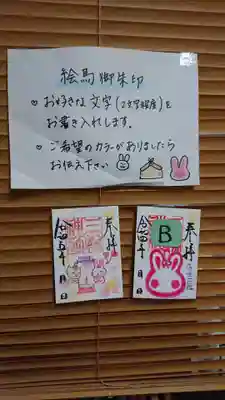 絵馬御朱印
お好きな文字(2文字程度)を
お書き入れします.
ご希望のカラーがありましたら
お伝え下さい
奉拝
月 日
奉拝
B
月 日